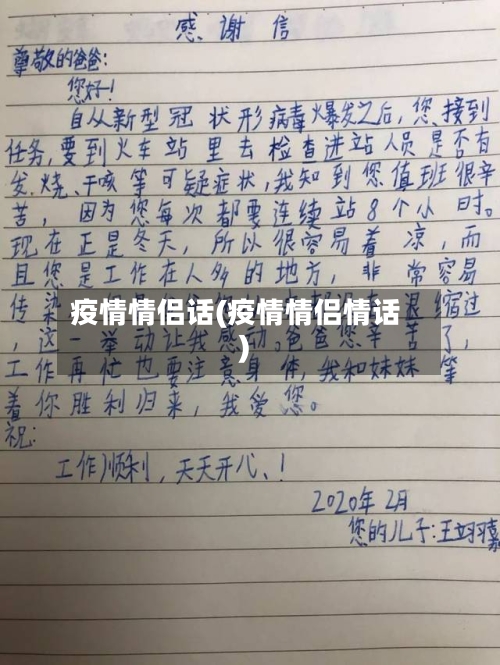 感谢信
尊敬的爸爸:
您好!
自从新型冠状形病毒爆发之后,您接到
任务,要到火车站里去检查进站人员是否有
发烧、干咳等可疑症状,我知到您值班很辛
苦,因为您每次都要连续站8个小时。
现在正是冬天,所以很容易着凉,而
且您是工作在人多的地方,非常容易
传染
退缩过
疫情情侣话(疫情情侣情话
)
,这一举动让我感动。爸爸您辛苦了,
工作再忙也要注意身体,我和妹妹等
着你胜利归来,我爱您。
祝:
工作顺利,天天开心!
2020年2月
您的儿子:王翊嘉